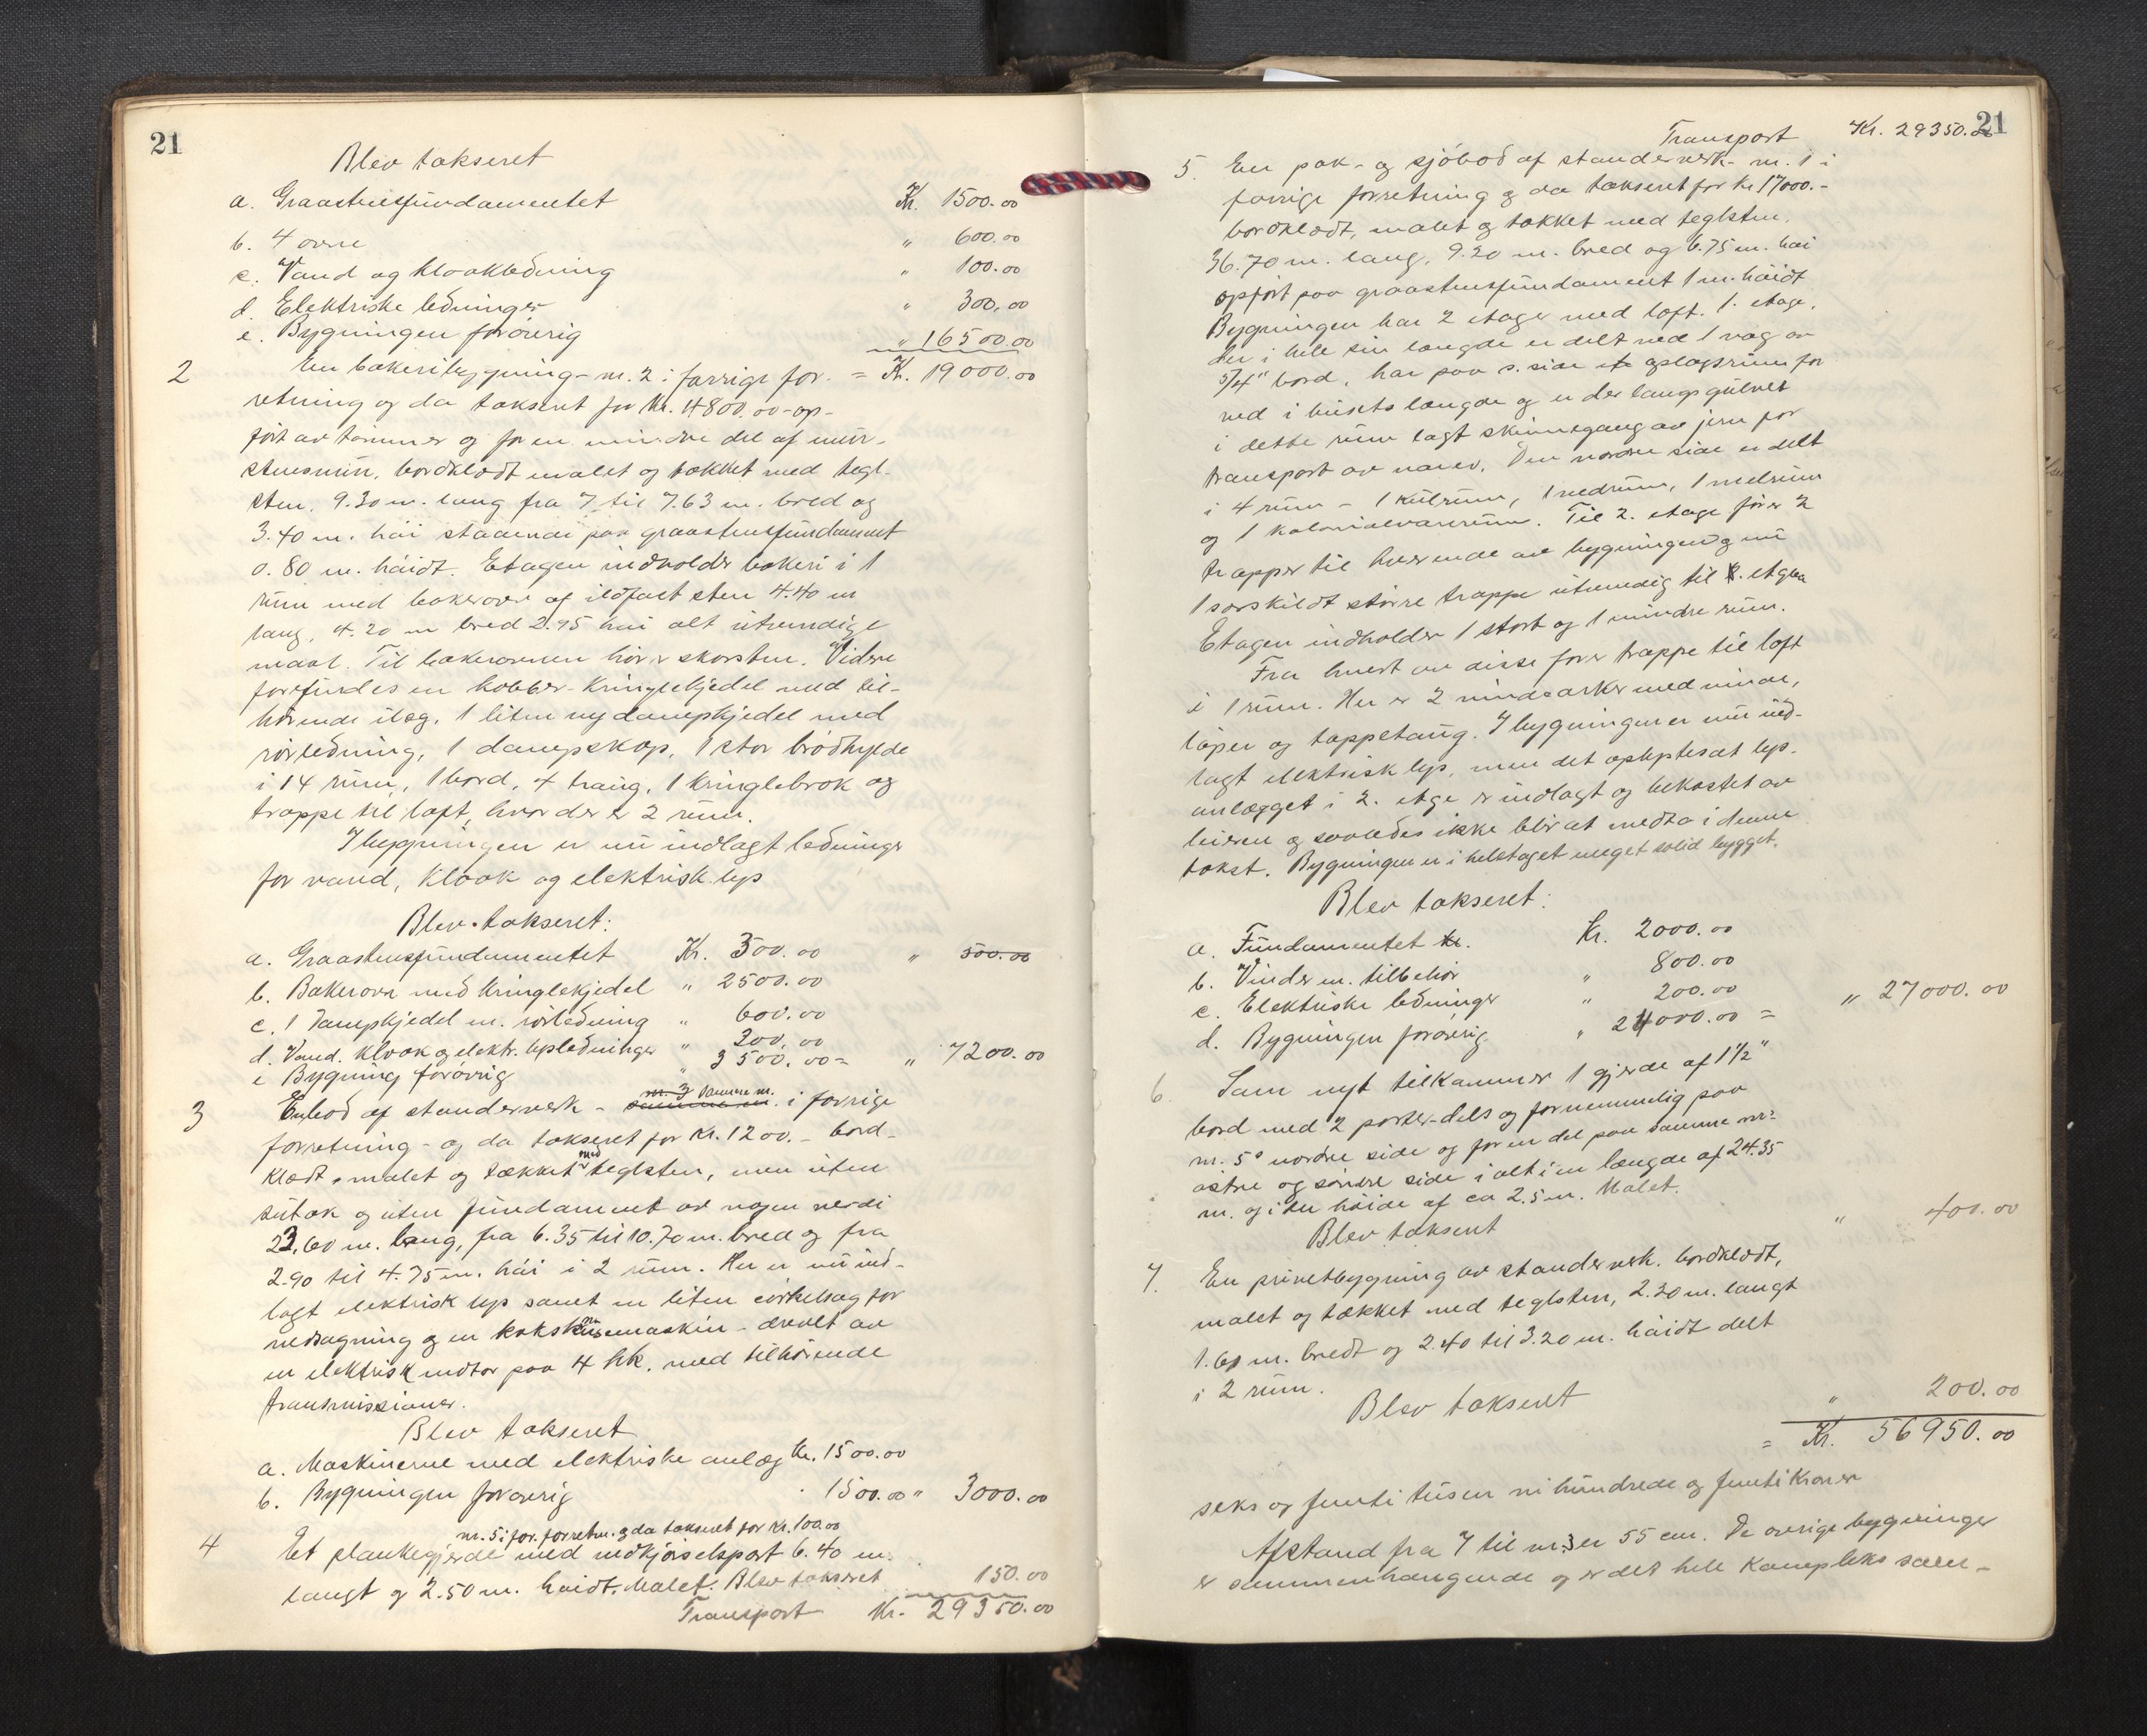 21
Blev takseret
a. Graastensfundamentet Kr. 1500.00
b. 4 ovne " 600.00
c. Vand og kloakledning " 100.00
d. Elektriske ledninger " 300.00
e. Bygningen forøvrig " 16500.00
2 En bakeribygning - nr. 2 i forrige for- = Kr. 19000.00
retning og da takseret for Kr. 4800.00 - op-
ført av tømmer og for en mindre del af mur-
stensmur, bordklædt malet og tækket med tegl-
sten. 9.30 m. lang fra 7 til 7.63 m. bred og
3.40 m. høi staaende paa graastensfundament
0.80 m. høidt. Etagen indholder bakeri i 1
rum med bakerovn af ildfast sten 4.40 m
lang, 4.20 m bred 2.95 høi alt utvendige
maal. Til bakerovnen hører skorsten. Videre
forefindes en kobber-kringlekjedel med til-
hørende ilæg, 1 liten ny dampkjedel med
rørledning, 1 dampskap, 1 stor brødhylde
i 14 rum, 1 bord, 4 traug, 1 kringlebrok og
trappe til loft, hvor der er 2 rum.
I bygningen er nu indlagt ledninger
for vand, kloak og elektrisk lys
Blev takseret:
a. Graastensfundamentet Kr. 300.00 " 500.00
b. Bakerovn med kringlekjedel " 2500.00
c. 1 Dampkjedel m. rørledning " 600.00
d. Vand. kloak og elektr. lysledninger " 300.00
e Bygning forøvrig " 3500.00 = " 7200.00
nr. 3 samme m.
3 En bod af standerverk - samme m. i forrige
forretning - og da takseret for Kr. 1200.- bord-
klædt, malet og tækket med teglsten, men uten
sutak og uten fundament av nogen verdi
23.60 m. lang, fra 6.35 til 10.70 m. bred og fra
2.90 til 4.75 m. høi i 2 rum. Her er nu ind-
lagt elektrisk lys samt en liten cirkelsag for
vedsagning og en koksknusemaskin - drevet av
en elektrisk motor paa 4 hk. med tilhørende
transmissioner.
Blev takseret
a. Maskinerne med elektriske anlæg Kr. 1500.00
b. Bygningen forøvrig 1500.00 " 3000.00
nr. 5 i for. forretn. og da takseret for Kr. 100.00
4 Et plankegjerde med nedkjørselsport 6.40 m.
langt og 2.50 m. høidt. Malet. Blev takseret 150.00
Transport Kr. 29350.00
21
Transport Kr. 29350.00
5. En pak- og sjøbod af standerverk - nr. 1 i
forrige forretning og da takseret for kr 17000.-
bordklædt, malet og tækket med teglsten.
36.70 m. lang, 9.20 m. bred og 6.75 m. høi
opført paa graastensfundament 1 m. høidt
Bygningen har 2 etager med loft. 1. etage,
der i hele sin længde er delt ved 1 væg av
5/4" bord, har paa s. side et oplagsrum for
ved i husets længde og er der langs gulvet
i dette rum lagt skinnegang av jern for
transport av varer. Den nordre side er delt
i 4 rum - 1 kulrum, 1 vedrum, 1 melrum
og 1 kolonialvarerum. Til 2. etage fører 2
trapper til hver ende av bygningen og nu
1 særskildt større trappe utvendig til 2. etage
Etagen indholder 1 stort og 1 mindre rum.
Fra hvert av disse fører trappe til loft
i 1 rum. Her er 2 vindearker med vinde,
løper og tappetaug. I bygningen er nu ind-
lagt elektrisk lys, men det oplyses at lys-
anlægget i 2. etge er indlagt og bekostet av
leieren og saaledes ikke blir at medta i denne
takst. Bygningen er i helstaget meget solid bygget.
Blev takseret:
a. Fundamentet kr. Kr. 2000.00
b. Vinder m. tilbehør " 800.00
c. Elektriske ledninger " 200.00
d. Bygningen forøvrig " 24000.00 = " 27000.00
6. Som nyt tilkommer 1 gjerde af 1 1/2"
bord med 2 porter - dels og fornemmelig paa
nr. 5s nordre side og for en del paa samme nr.s
østre og søndre side i alt i en længde af 24.35
m. og i en høide af ca 2.5 m. Malet.
Blev takseret " 400.00
7. En privetbygning av standerverk. bordklædt,
malet og tækket med teglsten, 2.30 m. langt
1.60 m. bredt og 2.40 til 3.20 m. høidt delt
i 2 rum.
Blev takseret " 200.00
= Kr. 56950.00
seks og femti tusen ni hundrede og femti Kroner
Afstand fra 7 til nr. 3 er 55 cm. De øvrige bygninger
er sammenhængende og er det hele kompleks saml-